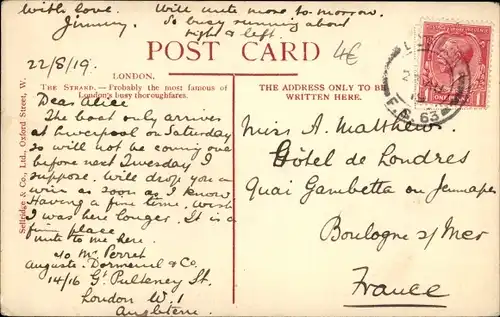 with love. Will write more to-morrow.
Jimmy. So busy running about
right & left.
4€
POST CARD
22/8/19.
LONDON.
THE STRAND.—Probably the most famous of
London's busy thoroughfares.
THE ADDRESS ONLY TO BE
WRITTEN HERE.
Dear Alice
The boat only arrives
at Liverpool on Saturday
so will not be coming over
before next Tuesday I
suppose. Will drop you a
wire as soon as I know.
Having a fine time. Wish
I was here longer. It is a
fine place
write to me here
to Mr. Perret
Auguste Dormeuil & Co.
14/16 Gt. Pulteney St.
London W.1
Angleterre
Miss A. Matthews
Hôtel de Londres
Quai Gambetta ou Jemmapes
Boulogne s/Mer
France
Selfridge & Co., Ltd., Oxford Street, W.
ONE PENNY
F.S. 63